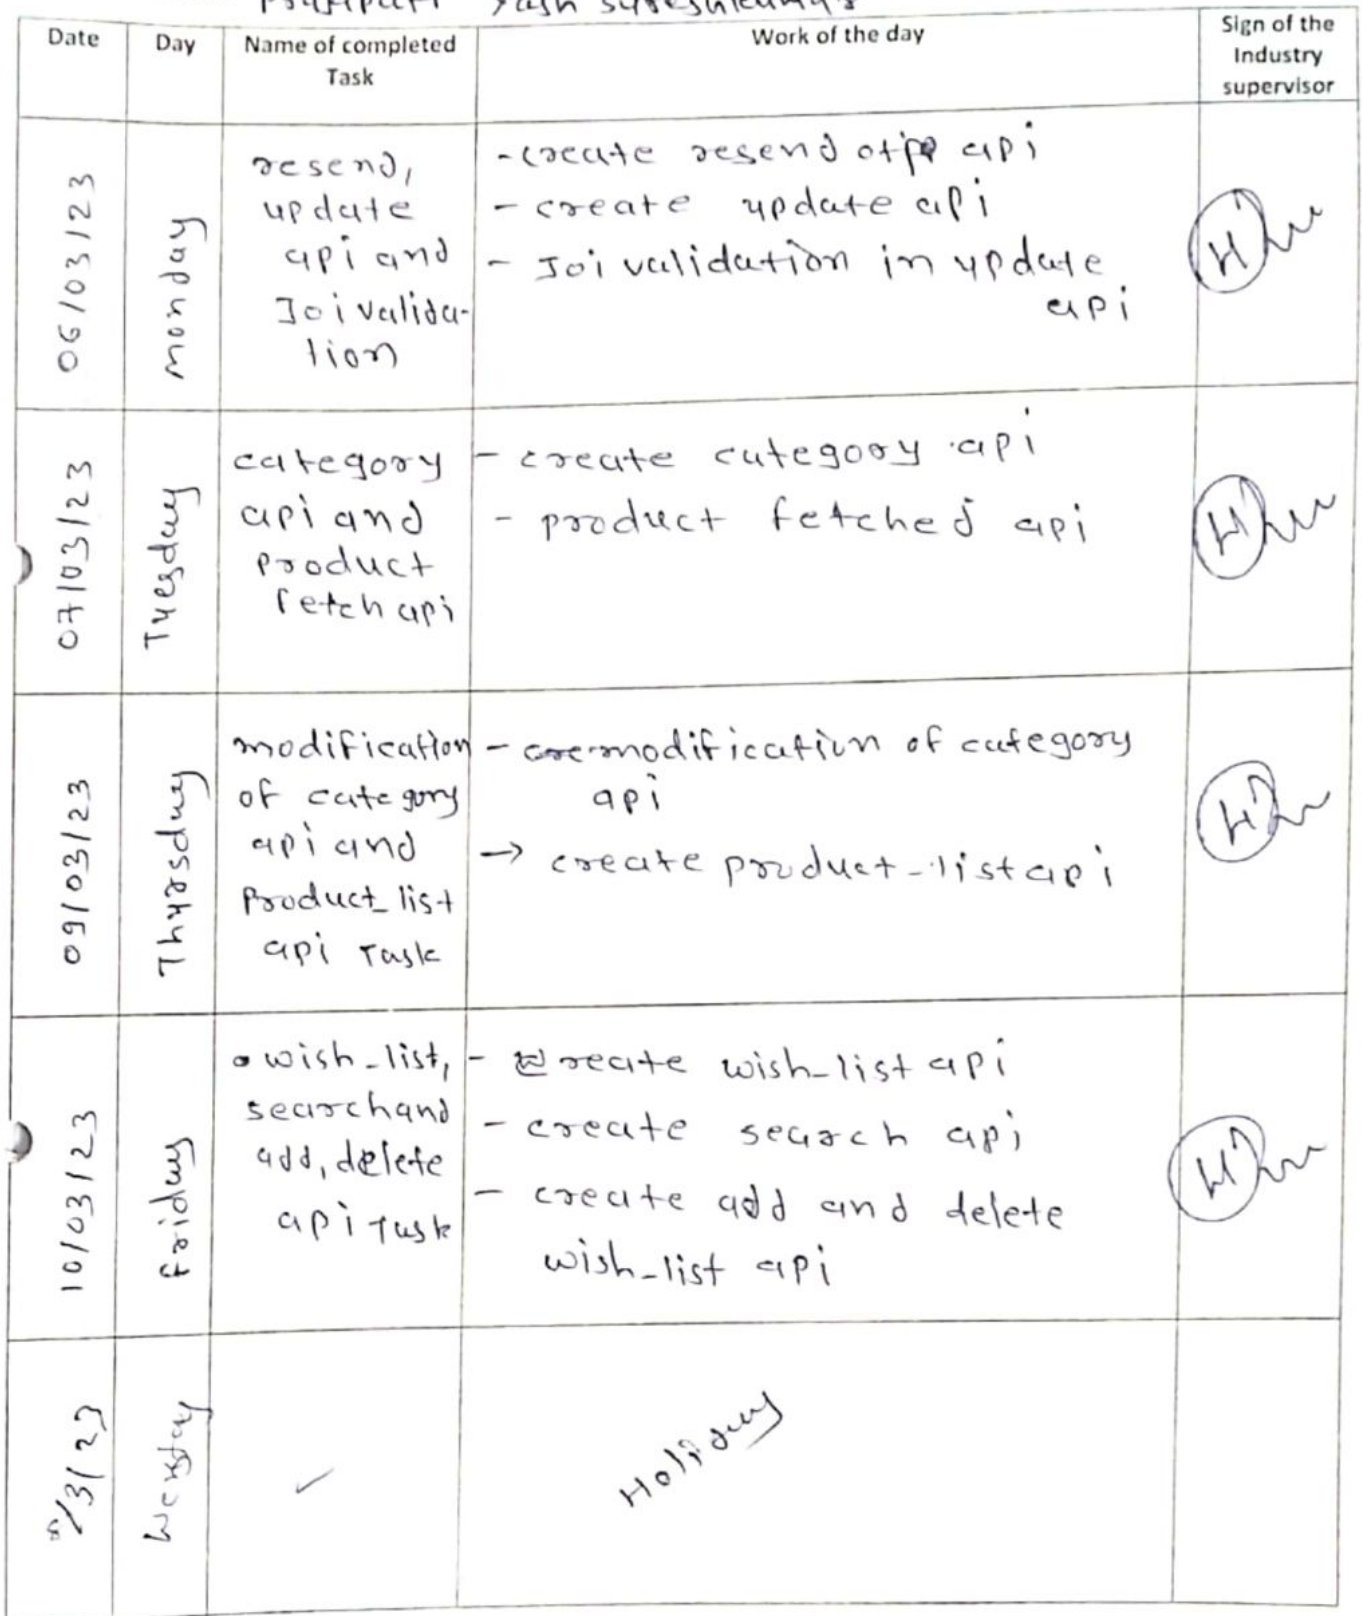 Prajapati Yash Sureshkumar
Date
Day
Name of completed
Task
Work of the day
Sign of the
Industry
supervisor
06/03/23
monday
resend,
update
api and
Joi valida-
tion
- create resend otp api
- create update api
- Joi validation in update
api
07/03/23
Tuesday
category
api and
product
fetch api
- create category api
- product fetched api
09/03/23
Thursday
modification
of category
api and
Product_list
api Task
- modification of category
api
→ create product_list api
10/03/23
friday
wish_list,
search and
add, delete
api Task
- create wish_list api
- create search api
- create add and delete
wish_list api
8/3/23
Holiday